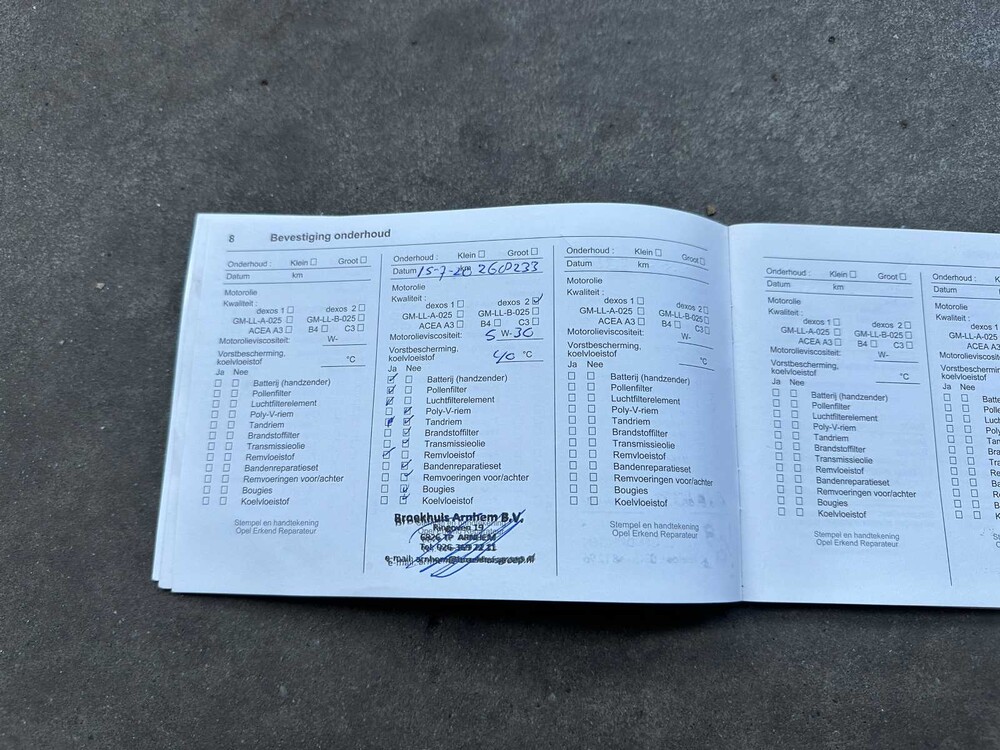 8 Bevestiging onderhoud
Onderhoud : Klein Groot
Datum km
Motorolie
Kwaliteit :
dexos 1 dexos 2
GM-LL-A-025 GM-LL-B-025
ACEA A3 B4 C3
Motorolieviscositeit: W-
Vorstbescherming,
koelvloeistof °C
Ja Nee
Batterij (handzender)
Pollenfilter
Luchtfilterelement
Poly-V-riem
Tandriem
Brandstoffilter
Transmissieolie
Remvloeistof
Bandenreparatieset
Remvoeringen voor/achter
Bougies
Koelvloeistof
Stempel en handtekening
Opel Erkend Reparateur
Onderhoud : Klein Groot
Datum 15-7-20 km 260233
Motorolie
Kwaliteit :
dexos 1 dexos 2
GM-LL-A-025 GM-LL-B-025
ACEA A3 B4 C3
Motorolieviscositeit: 5 W- 30
Vorstbescherming,
koelvloeistof 40 °C
Ja Nee
Batterij (handzender)
Pollenfilter
Luchtfilterelement
Poly-V-riem
Tandriem
Brandstoffilter
Transmissieolie
Remvloeistof
Bandenreparatieset
Remvoeringen voor/achter
Bougies
Koelvloeistof
Broekhuis Arnhem B.V.
Ringoven 19
6826 TP ARNHEM
e-mail: arnhem@broekhuisgroep.nl
Onderhoud : Klein Groot
Datum km
Motorolie
Kwaliteit :
dexos 1 dexos 2
GM-LL-A-025 GM-LL-B-025
ACEA A3 B4 C3
Motorolieviscositeit: W-
Vorstbescherming,
koelvloeistof °C
Ja Nee
Batterij (handzender)
Pollenfilter
Luchtfilterelement
Poly-V-riem
Tandriem
Brandstoffilter
Transmissieolie
Remvloeistof
Bandenreparatieset
Remvoeringen voor/achter
Bougies
Koelvloeistof
Stempel en handtekening
Opel Erkend Reparateur
Onderhoud : Klein Groot
Datum km
Motorolie
Kwaliteit :
dexos 1 dexos 2
GM-LL-A-025 GM-LL-B-025
ACEA A3 B4 C3
Motorolieviscositeit: W-
Vorstbescherming,
koelvloeistof °C
Ja Nee
Batterij (handzender)
Pollenfilter
Luchtfilterelement
Poly-V-riem
Tandriem
Brandstoffilter
Transmissieolie
Remvloeistof
Bandenreparatieset
Remvoeringen voor/achter
Bougies
Koelvloeistof
Stempel en handtekening
Opel Erkend Reparateur
Onderhoud : Klein
Datum
Motorolie
Kwaliteit :
dexos 1
GM-LL-A-025
ACEA A3
Motorolieviscositeit
Vorstbescherming,
koelvloeistof
Ja Nee